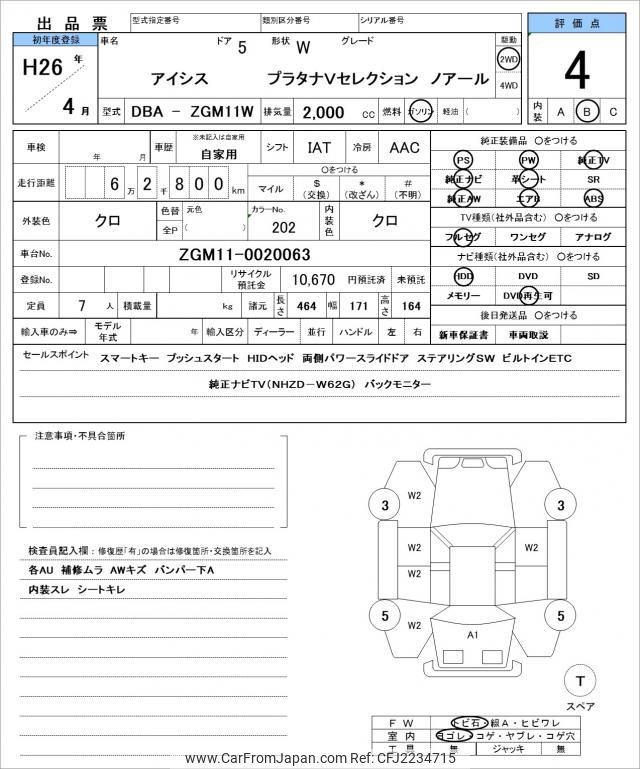 出品票 型式指定番号 類別区分番号 シリアル番号
評価点
初年度登録 車名 ドア 5 形状 W グレード 駆動
H26 年 アイシス プラタナVセレクション ノアール 2WD 4
4WD
4 月 型式 DBA - ZGM11W 排気量 2,000 cc 燃料 ガソリン 軽油 ( ) 内装 A B C
車検 年 月 車歴 ※未記入は自家用 自家用 シフト IAT 冷房 AAC 純正装備品 〇をつける
PS PW 純正TV
走行距離 6 万 2 千 8 0 0 km 〇をつける
マイル $ (交換) * (改ざん) # (不明)
純正ナビ 革シート SR
純正AW エアB ABS
外装色 クロ 色替 元色 全P ( ) カラーNo. 202 内装色 クロ TV種類(社外品含む) 〇をつける
フルセグ ワンセグ アナログ
車台No. ZGM11-0020063 ナビ種類(社外品含む) 〇をつける
登録No. リサイクル預託金 10,670 円預託済 未預託 HDD DVD SD
メモリー DVD再生可
定員 7 人 積載量 kg 諸元 長さ 464 幅 171 高さ 164 後日発送品 〇をつける
輸入車のみ⇒ モデル年式 年 輸入区分 ディーラー 並行 ハンドル 左 右 新車保証書 車両取説
セールスポイント スマートキー プッシュスタート HIDヘッド 両側パワースライドドア ステアリングSW ビルトインETC
純正ナビTV(NHZD-W62G) バックモニター
注意事項・不具合箇所
検査員記入欄：修復歴「有」の場合は修復箇所・交換箇所を記入
各AU 補修ムラ AWキズ バンパー下A
内装スレ シートキレ
W2
3 3
W2 W2
W2
5 5
W2
A1
T
スペア
FW トビ石・線A・ヒビワレ
室内 ヨゴレ・コゲ・ヤブレ・コゲ穴
工具 無 ジャッキ 無
www.CarFromJapan.com Ref: CFJ2234715